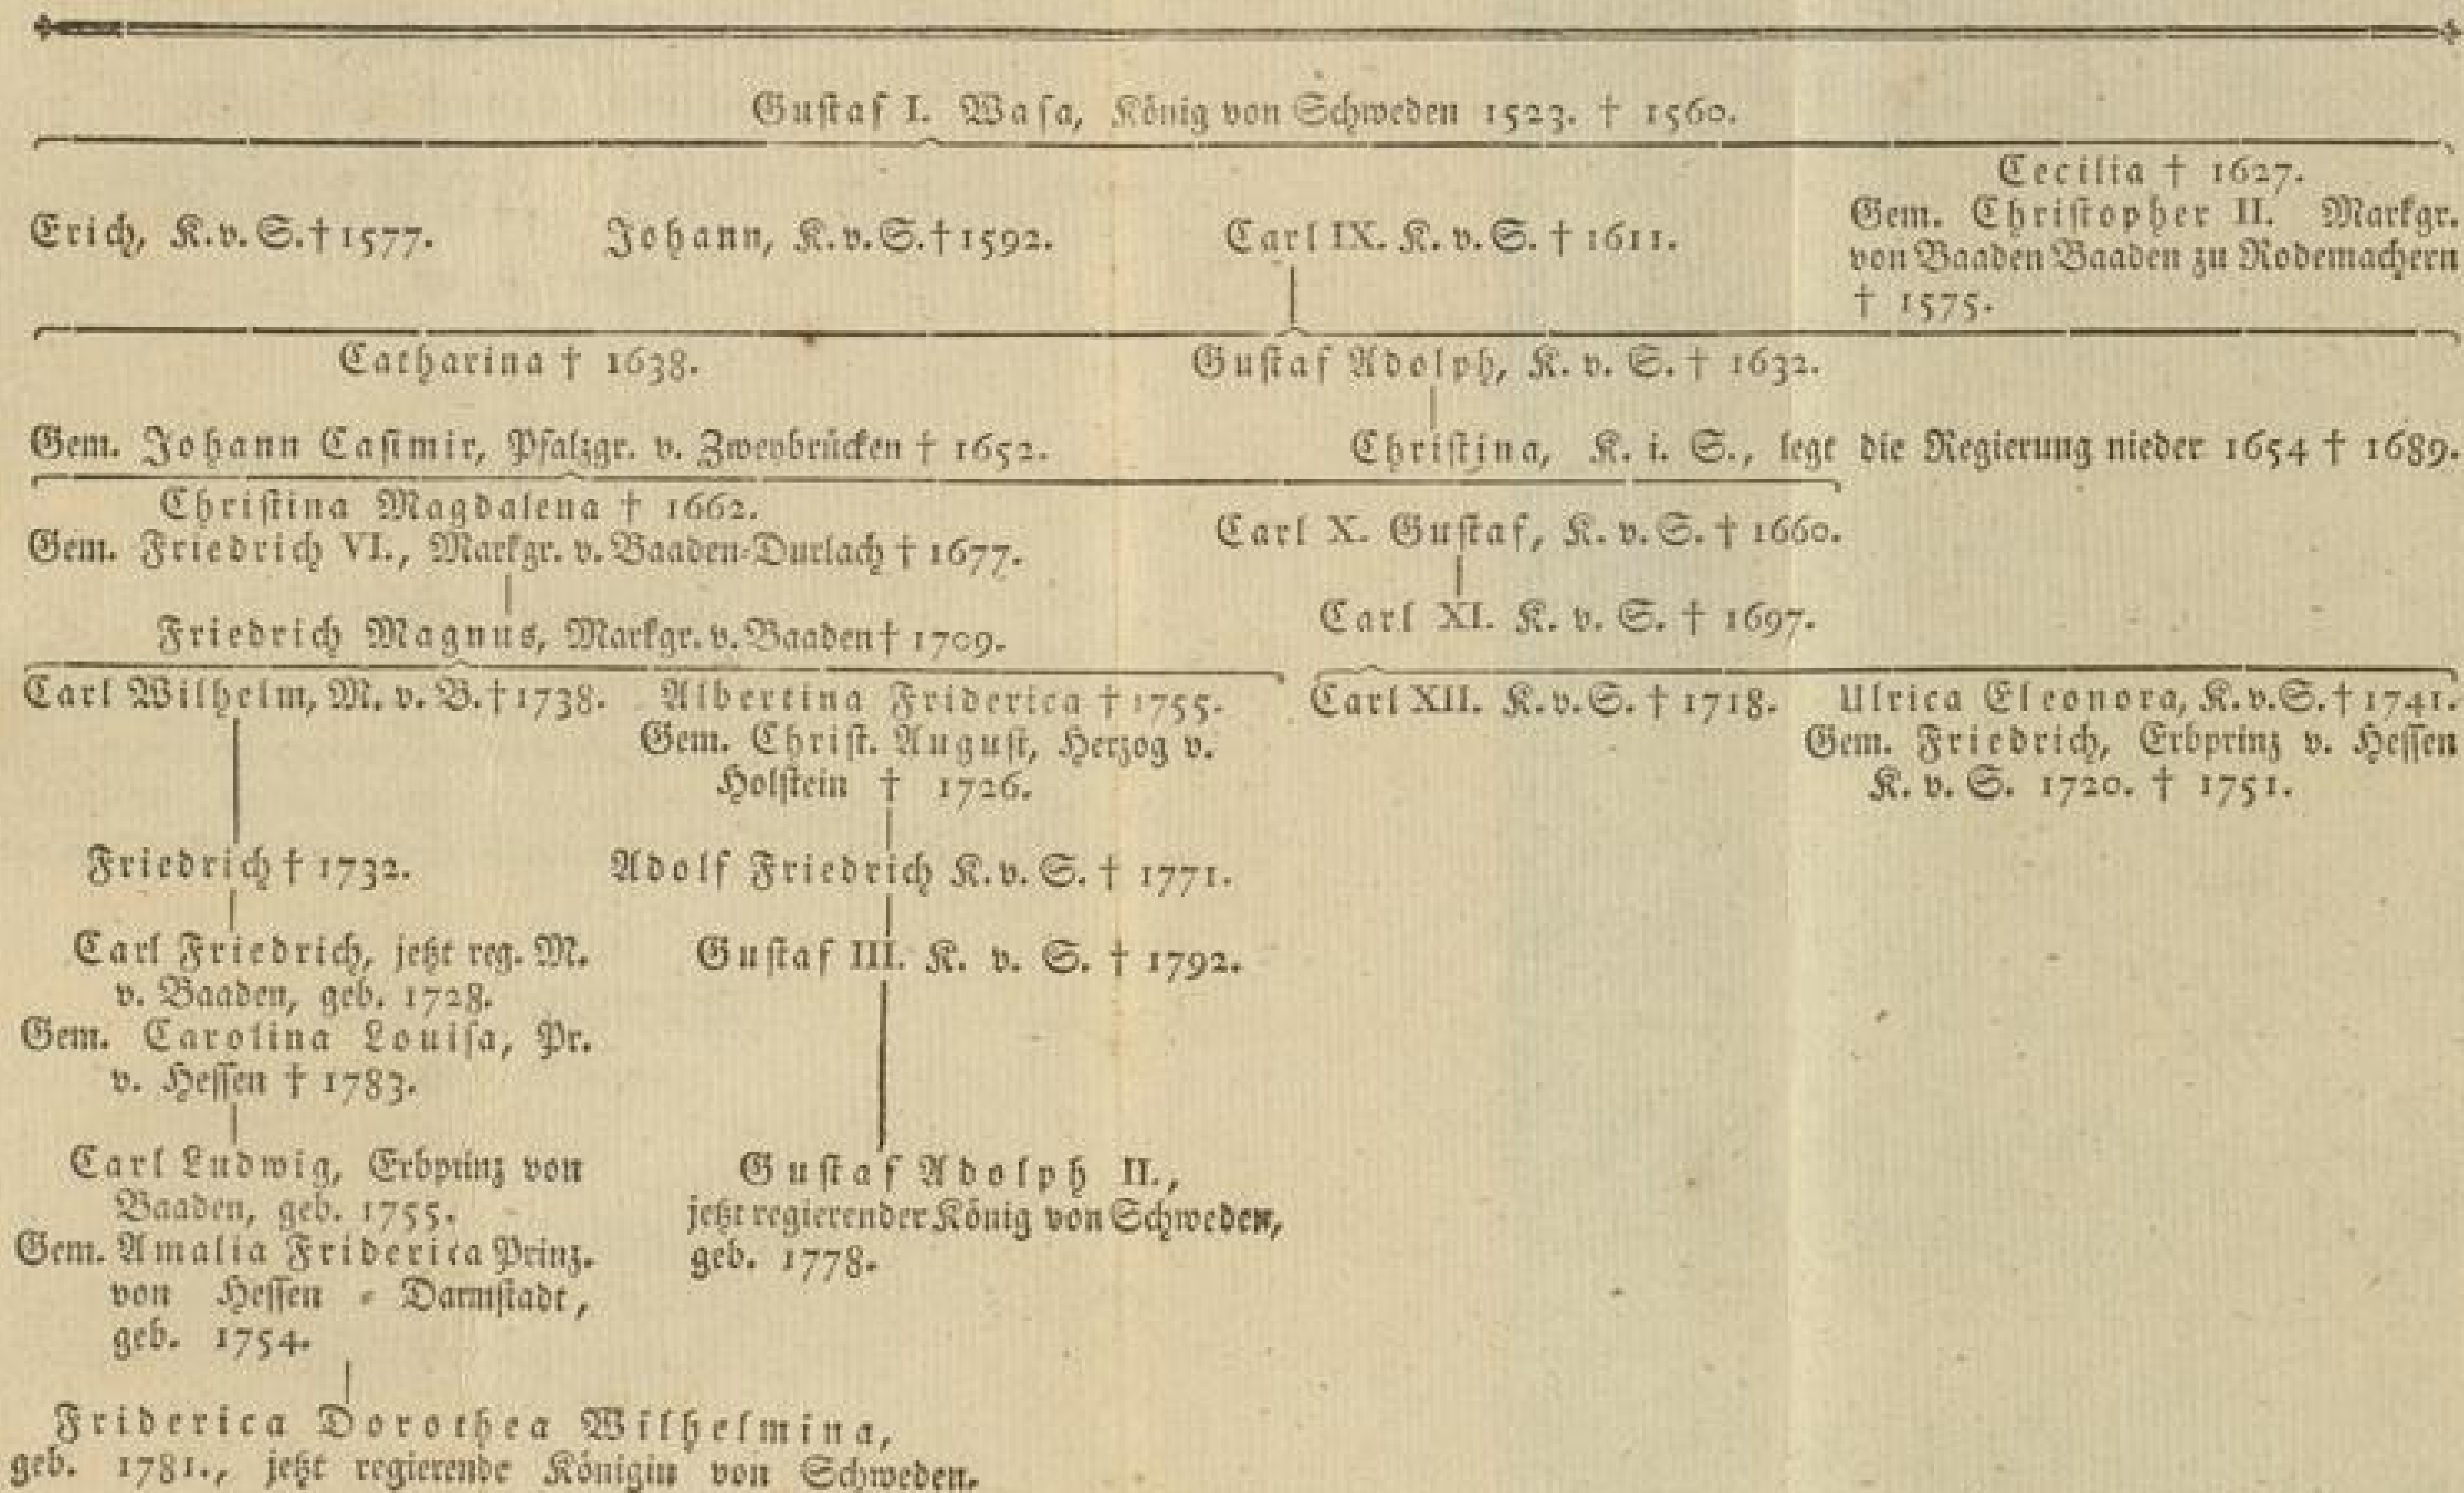 Gustaf I. Wasa, König von Schweden 1523. † 1560.
Erich, K. v. S. † 1577.
Johann, K. v. S. † 1592.
Carl IX. K. v. S. † 1611.
Cecilia † 1627.
Gem. Christopher II. Markgr.
von Baaden Baaden zu Rodemachern
† 1575.
Catharina † 1638.
Gem. Johann Casimir, Pfalzgr. v. Zweybrücken † 1652.
Gustaf Adolph, K. v. S. † 1632.
Christina, K. i. S., legt die Regierung nieder 1654 † 1689.
Christina Magdalena † 1662.
Gem. Friedrich VI., Markgr. v. Baaden-Durlach † 1677.
Carl X. Gustaf, K. v. S. † 1660.
Friedrich Magnus, Markgr. v. Baaden † 1709.
Carl XI. K. v. S. † 1697.
Carl Wilhelm, M. v. B. † 1738.
Albertina Friderica † 1755.
Gem. Christ. August, Herzog v.
Holstein † 1726.
Carl XII. K. v. S. † 1718.
Ulrica Eleonora, K. v. S. † 1741.
Gem. Friedrich, Erbprinz v. Hessen
K. v. S. 1720. † 1751.
Friedrich † 1732.
Adolf Friedrich K. v. S. † 1771.
Carl Friedrich, jetzt reg. M.
v. Baaden, geb. 1728.
Gem. Carolina Louisa, Pr.
v. Hessen † 1783.
Gustaf III. K. v. S. † 1792.
Carl Ludwig, Erbprinz von
Baaden, geb. 1755.
Gem. Amalia Friderica Prinz.
von Hessen-Darmstadt,
geb. 1754.
Gustaf Adolph II.,
jetzt regierender König von Schweden,
geb. 1778.
Friderica Dorothea Wilhelmina,
geb. 1781., jetzt regierende Königin von Schweden.